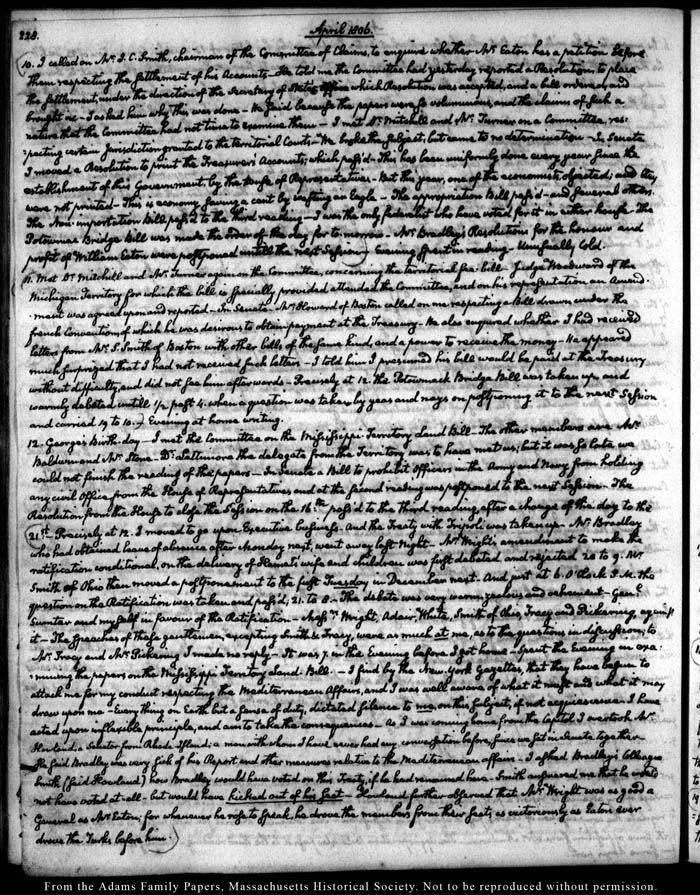 228. April 1806.
10. I called on Mr. J. C. Smith, chairman of the Committee of Claims, to enquire whether Mr. Eaton has a petition before
them respecting the settlement of his Accounts — He told me the Committee had yesterday reported a Resolution, to place
the settlement, under the direction of the Secretary of State which Resolution was accepted, and a bill ordered, and
brought in — I asked him why this was done — He said because the papers were so voluminous, and the claims of such a
nature that the Committee had not time to examine them — I met Dr. Mitchell and Mr. Turner on a Committee, res-
:pecting certain Jurisdiction granted to the territorial Courts — We broke the subject, but came to no determination — In Senate
I moved a Resolution to print the Treasurer's Accounts, which pass'd — This has been uniformly done every year since the
establishment of this Government, by the House of Representatives — But this year, one of the economists objected, and they
were not printed — This is economy saving a cent by wasting an Eagle — The appropriation Bill pass'd — and several others.
The Non-importation Bill, pass'd to the third reading — I was the only federalist who have voted for it in either house — The
Potowmac Bridge Bill was made the order of the day for to-morrow — Mr. Bradley's Resolutions for the honour and
profit of William Eaton were postponed untill the next Session — Evening spent in reading — Unusually Cold.
11. Met Dr. Mitchell and Mr. Turner again on the Committee, concerning the territorial fee-bill — Judge Woodward of the
Michigan Territory for which the bill is specially provided attended the Committee, and on his representation an Amend-
:ment was agreed upon and reported — In Senate — Mr. Howard of Boston called on me respecting a Bill drawn under the
french Convention, of which he was desirous to obtain payment at the Treasury — He also enquired whether I had received
letters from Mr. S. Smith of Boston with other bills of the same kind, and a power to receive the money — He appeared
much surprized that I had not received such letters — I told him I presumed his bill would be paid at the Treasury
without difficulty, and did not see him afterwards — Precisely at 12. the Potowmack Bridge Bill was taken up, and
warmly debated untill 1/2 past 4. when a question was taken by yeas and nays on postponing it to the next Session
and carried 19 to 10. — Evening at home writing.
12. George's Birth-day — I met the Committee on the Missisippi Territory Land Bill — The other members are Mr.
Baldwin and Mr. Stone. Dr. Lattimore the delegate from the Territory was to have met us; but it was so late we
could not finish the reading of the papers — In Senate a Bill to prohibit Officers in the Army and Navy from holding
any civil Office, from the House of Representatives and at the second reading was postponed to the next Session. The
Resolution from the House to close the Session on the 16th pass'd to the third reading, after a change of the day to the
21st — Precisely at 12. I moved to go upon Executive business. And the Treaty with Tripoli was taken up — Mr. Bradley
who had obtained leave of absence after Monday next, went away last Night — Mr. Wright's amendment to make the
ratification conditional, on the delivery of Hamet's wife and children was first debated and rejected 20 to 9. Mr.
Smith of Ohio then moved a postponement to the first Tuesday in December next. And just at 6. O'Clock P.M. the
question on the Ratification was taken and pass'd, 21. to 8 — The debate was very warm, zealous and vehement — Genl.
Sumter and myself in favour of the Ratification — Messrs. Wright, Adair, White, Smith of Ohio, Tracy and Pickering, against
it — The speeches of these gentlemen, excepting Smith & Tracy, were as much at me, as to the questions in discussion; to
Mr. Tracy and Mr. Pickering I made no reply — It was 7. in the Evening before I got home — Spent the evening in exa-
:mining the papers on the Missisippi Territory Land-Bill. — I find by the New-York Gazettes, that they have begun to
attack me for my conduct respecting the Mediterranean Affairs, and I was well aware of what it must and what it may
draw upon me — Every thing on Earth but a sense of duty, dictated silence to me on this subject, if not acquiescence — I have
acted upon inflexible principle, and aim to take the consequences — As I was coming home from the Capitol I overtook Mr.
Howland, a Senator from Rhode-Island; a man with whom I have never had any conversation before, since we sat in Senate together
He said Bradley was very sick of his Report and other measures relative to the Mediterranean affairs — I asked Bradley's Colleague
Smith (said Howland) how Bradley would have voted on this Treaty, if he had remained here — Smith answered me that he would
not have voted at all — but would have kicked out of his seat — Howland further observed that Mr. Wright was as good a
General as Mr. Eaton; for whenever he rose to speak, he drove the members from their seats, as victoriously as Eaton ever
drove the Turks before him.
From the Adams Family Papers, Massachusetts Historical Society. Not to be reproduced without permission.